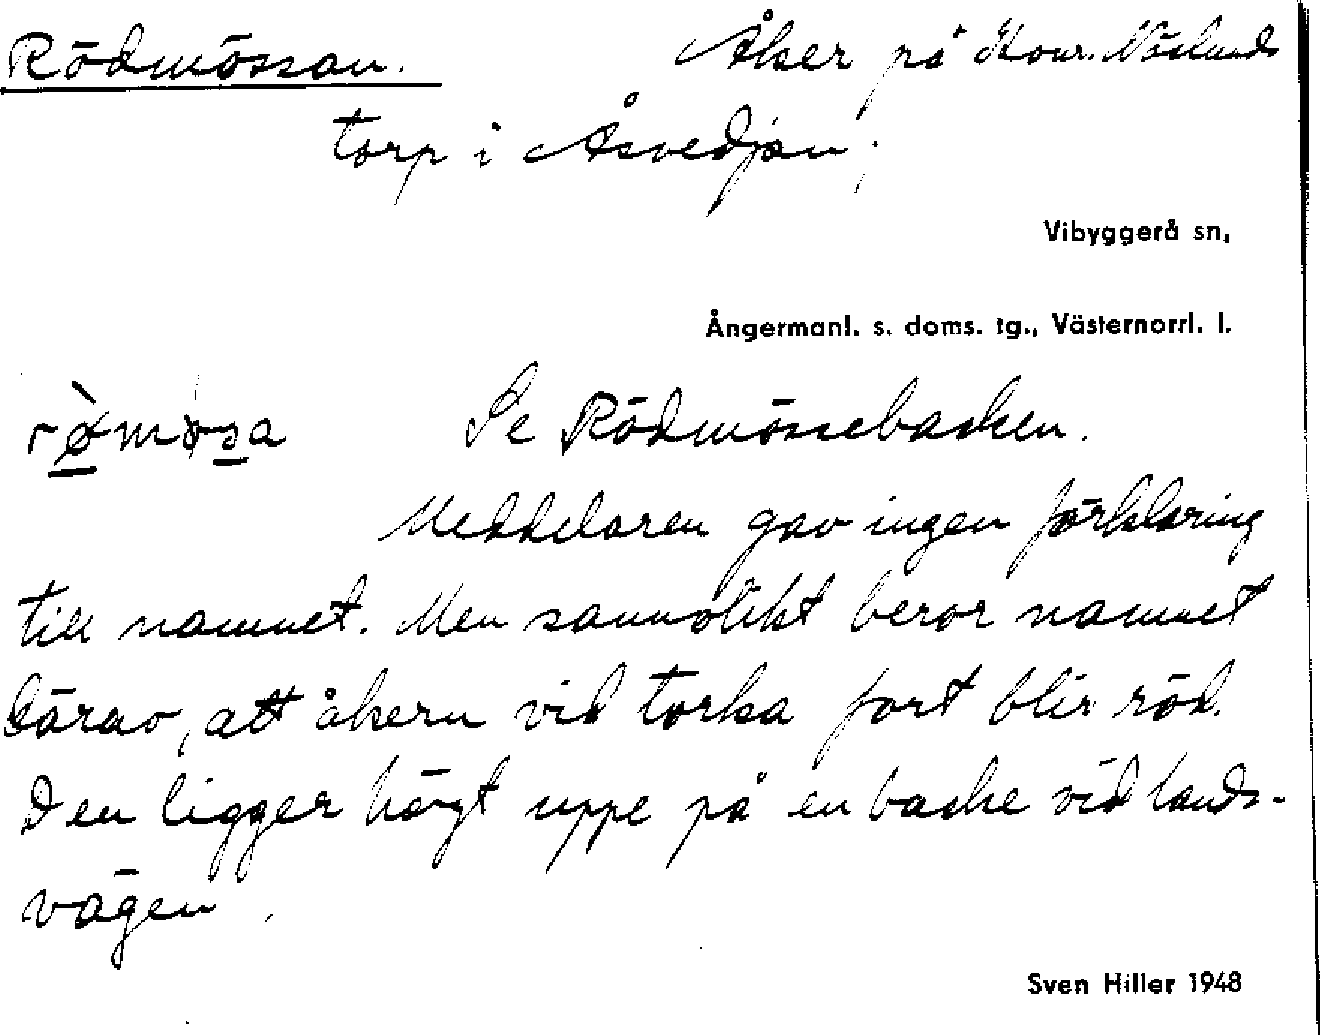 Rödmössan. Åker på Konr. Näslunds
torp i Åsvedjan;
Vibyggerå sn,
Ångermanl. s. doms. tg., Västernorrl. l.
rø̀møsa Se Rödmössebacken.
Meddelaren gav ingen förklaring
till namnet. Men sannolikt beror namnet
därav, att åkern vid torka fort blir röd.
Den ligger högt uppe på en backe vid lands-
vägen.
Sven Hiller 1948